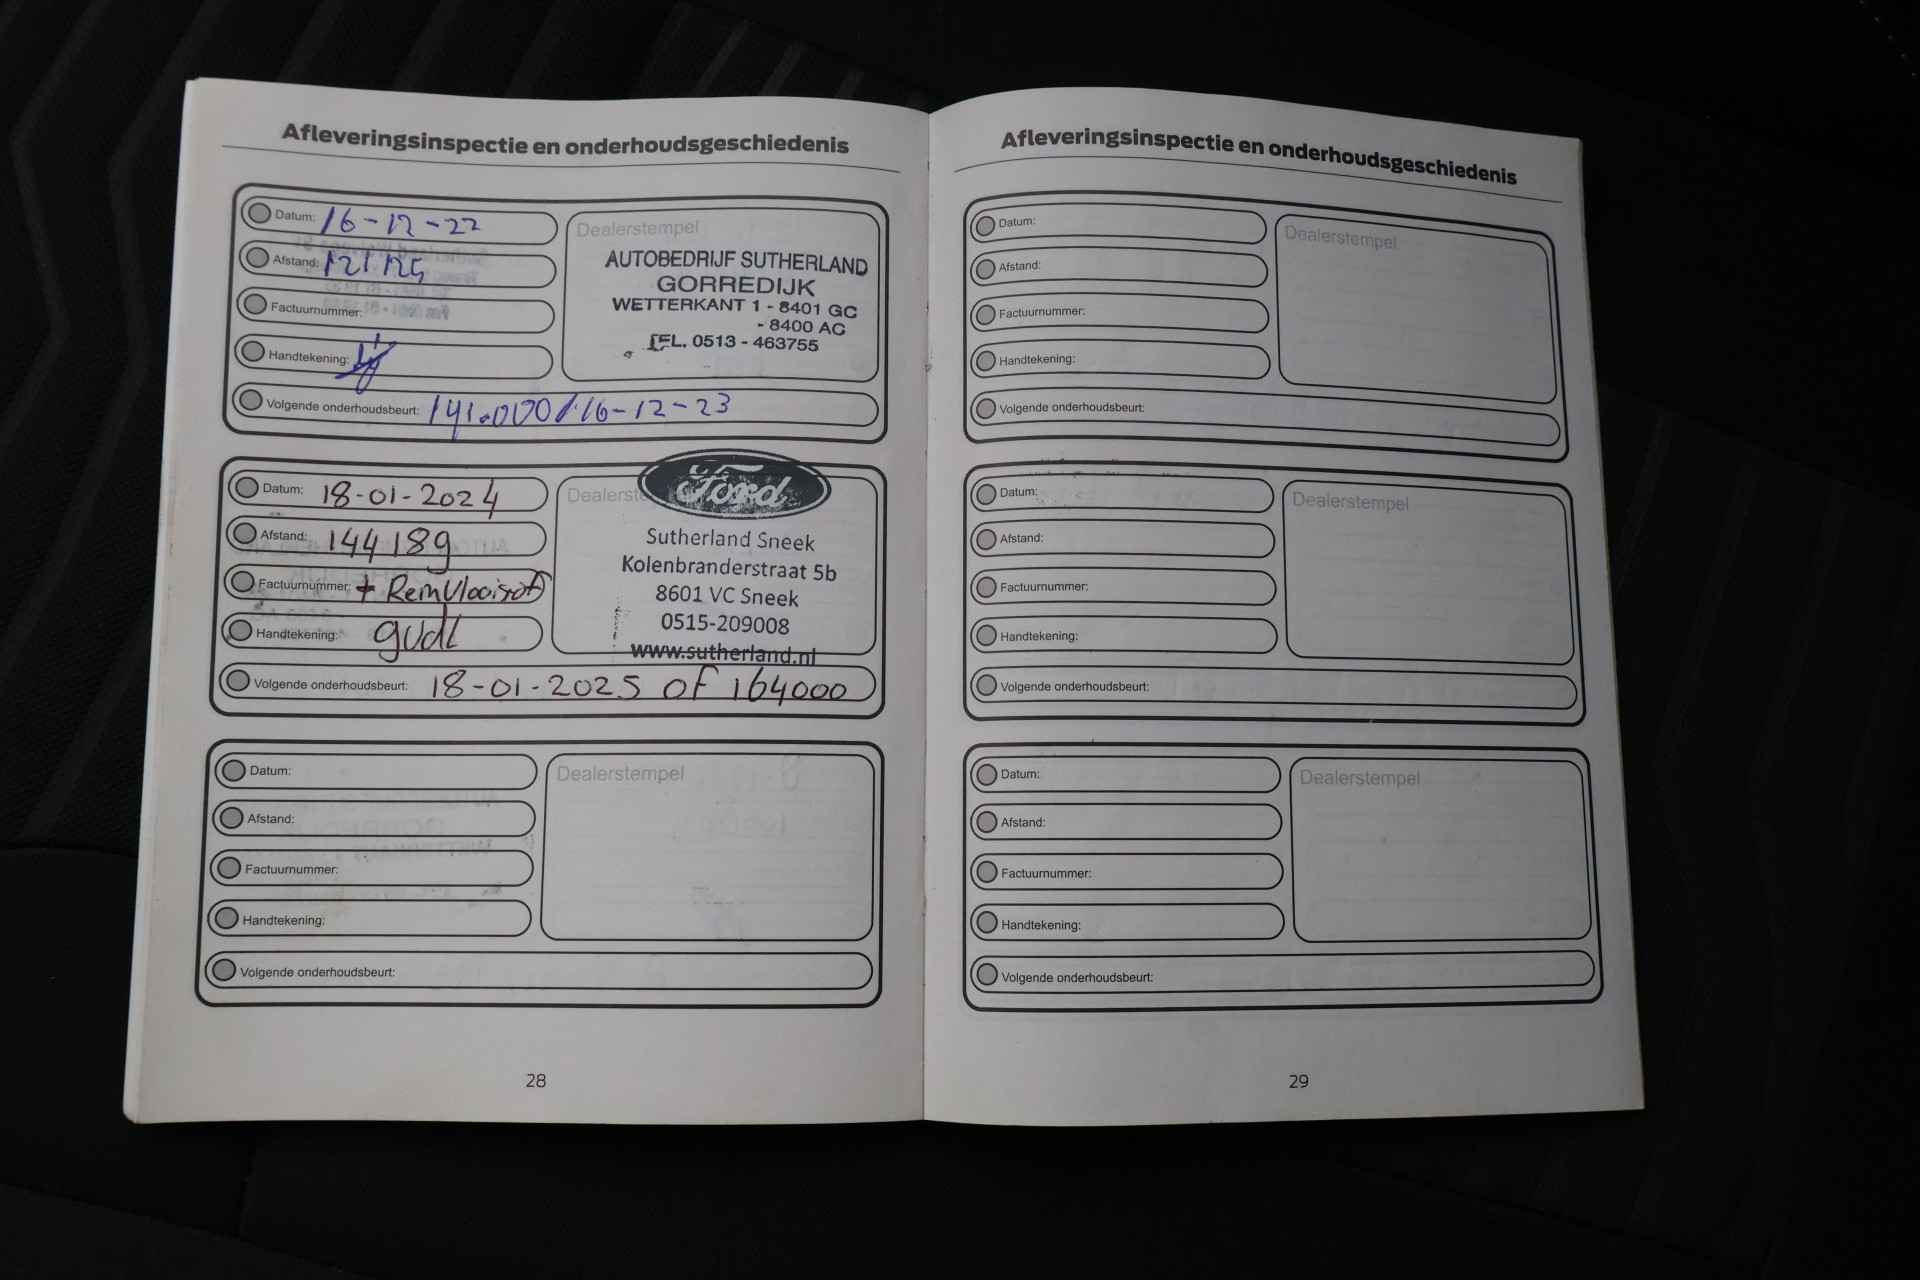 Afleveringsinspectie en onderhoudsgeschiedenis
Datum: 16-12-22
Afstand: 121125
Factuurnummer:
Handtekening:
Dealerstempel
AUTOBEDRIJF SUTHERLAND
GORREDIJK
WETTERKANT 1 - 8401 GC
- 8400 AC
TEL. 0513 - 463755
Volgende onderhoudsbeurt: 141.000 / 16-12-23
Datum: 18-01-2024
Afstand: 144189
Factuurnummer: + Remvloeistof
Handtekening:
Dealerste
Ford
Sutherland Sneek
Kolenbranderstraat 5b
8601 VC Sneek
0515-209008
www.sutherland.nl
Volgende onderhoudsbeurt: 18-01-2025 of 164000
Datum:
Afstand:
Factuurnummer:
Handtekening:
Dealerstempel
Volgende onderhoudsbeurt:
28
Afleveringsinspectie en onderhoudsgeschiedenis
Datum:
Afstand:
Factuurnummer:
Handtekening:
Dealerstempel
Volgende onderhoudsbeurt:
Datum:
Afstand:
Factuurnummer:
Handtekening:
Dealerstempel
Volgende onderhoudsbeurt:
Datum:
Afstand:
Factuurnummer:
Handtekening:
Dealerstempel
Volgende onderhoudsbeurt:
29